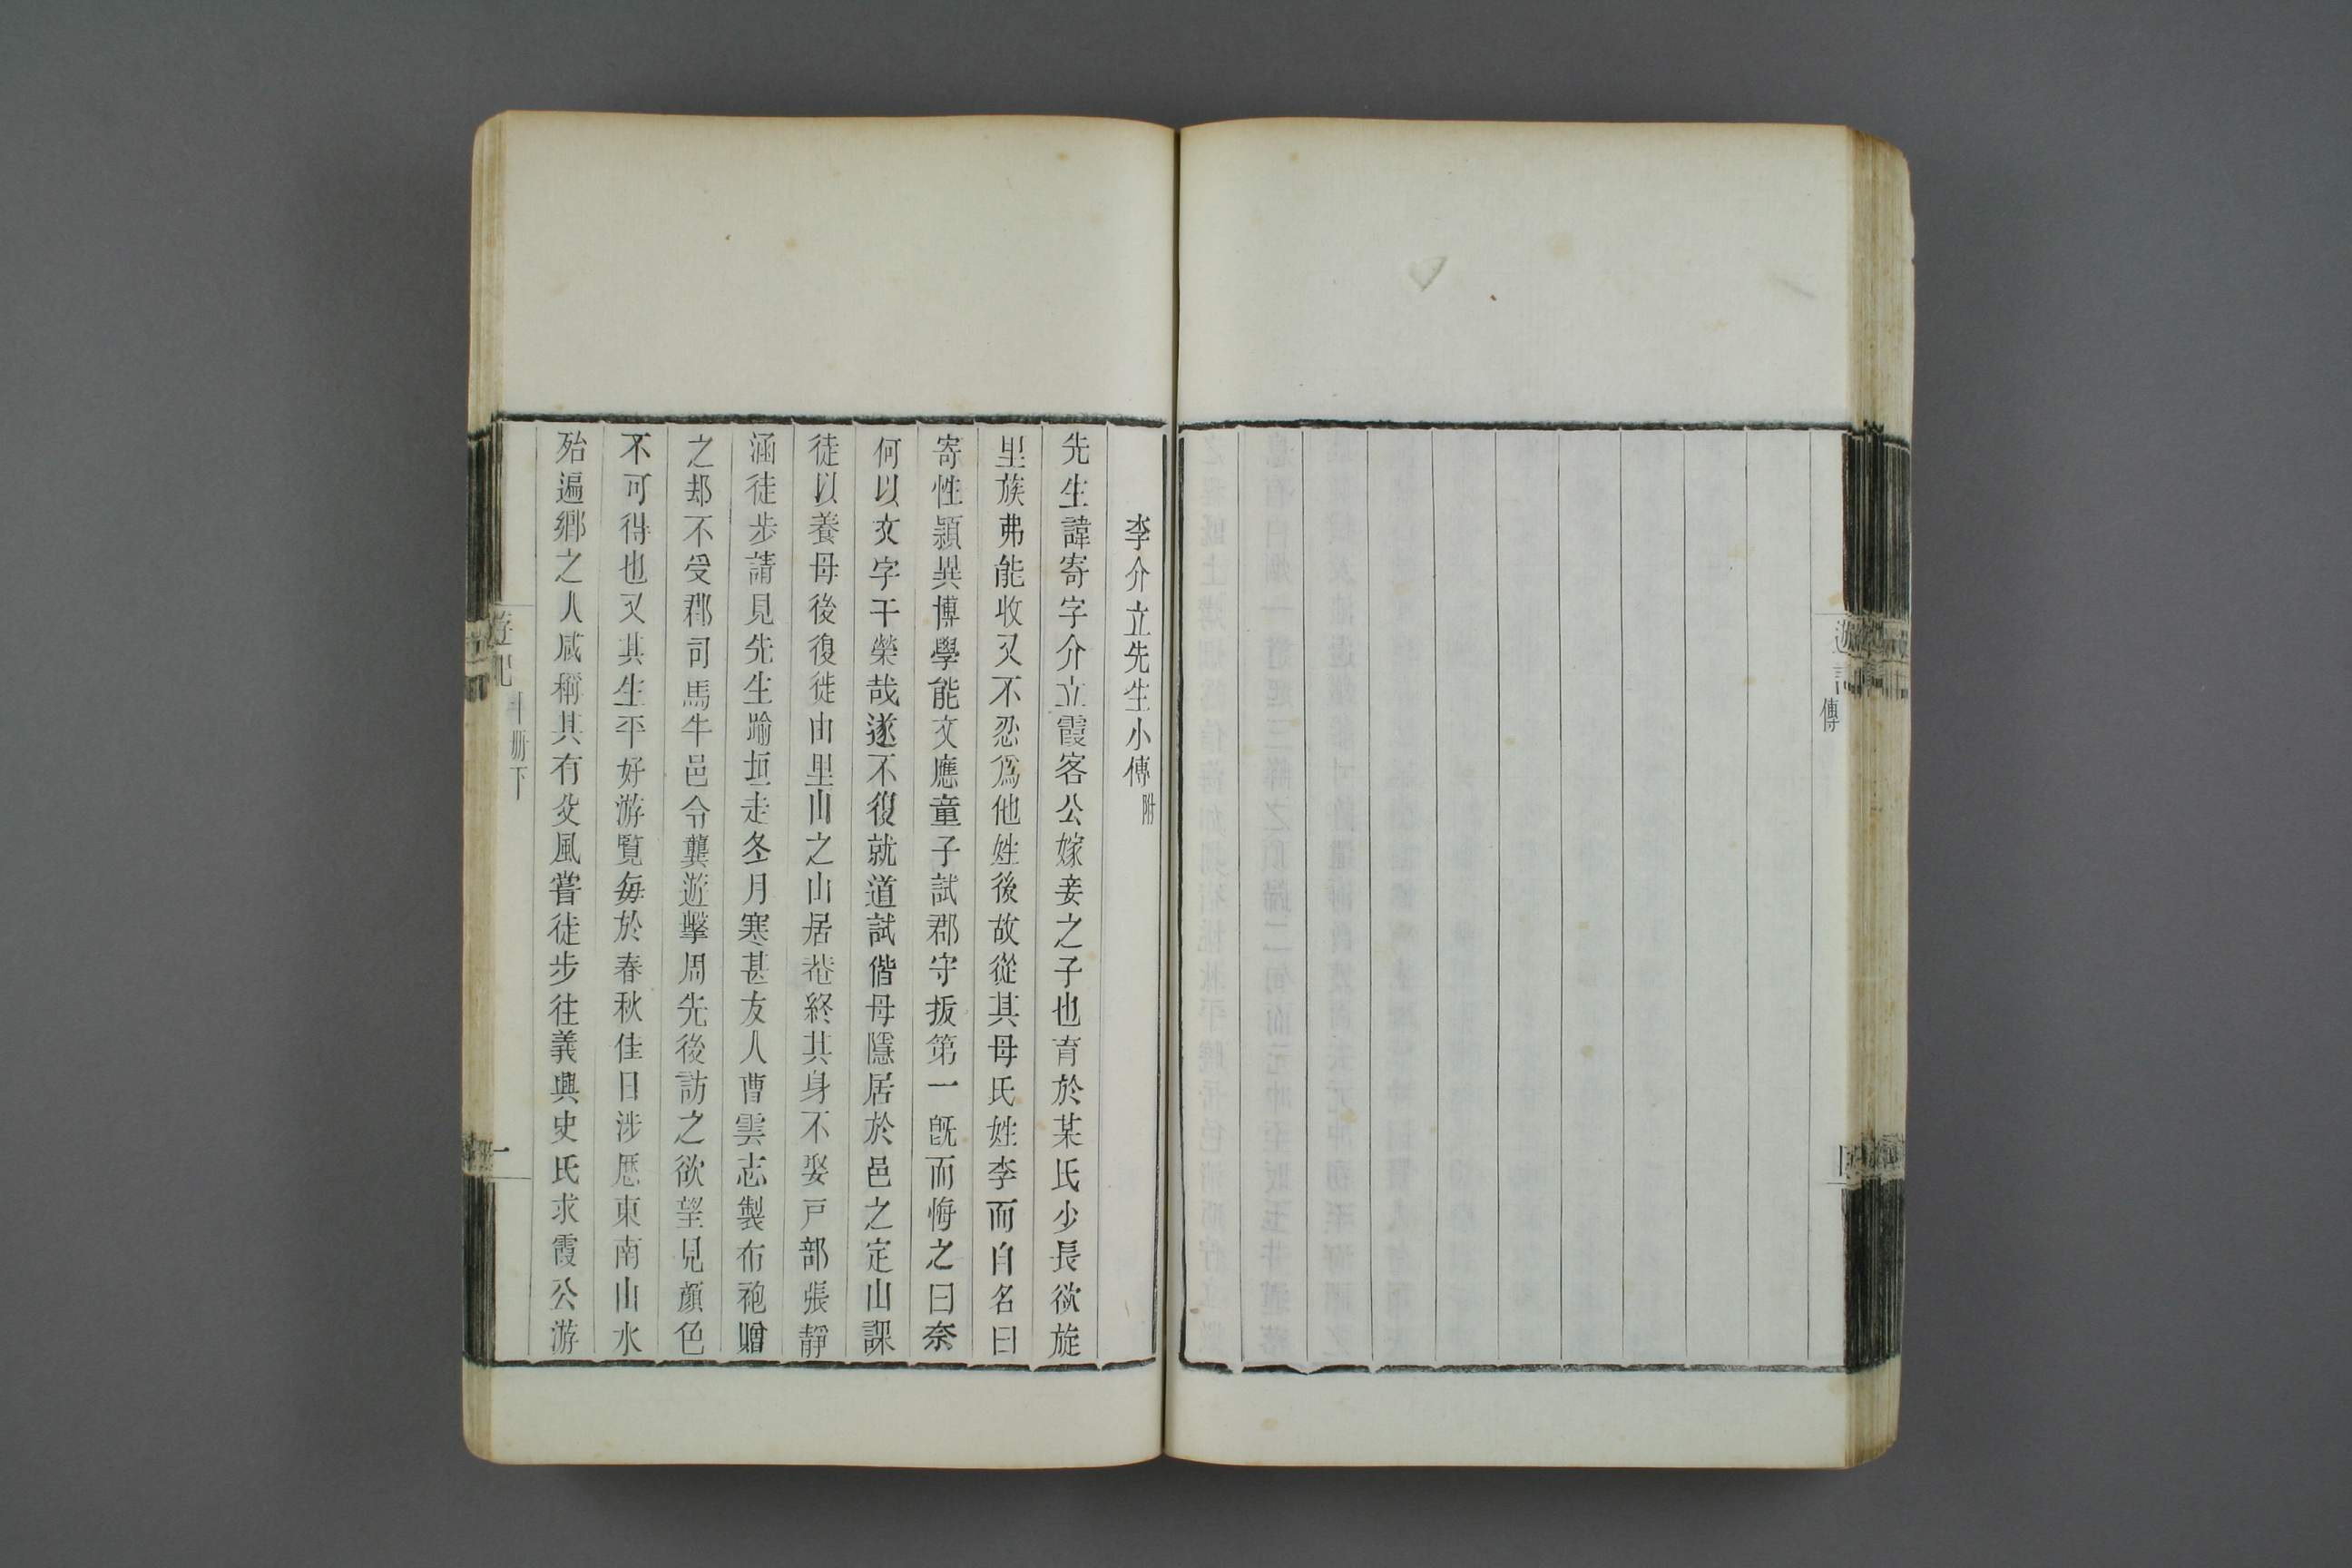 傳
李介立先生小傳附
先生諱寄字介立霞客公嫁妾之子也育於某氏少長欲旋
里族弗能收又不忍爲他姓後故從其母氏姓李而自名曰
寄性頴異博學能文應童子試郡守拔第一旣而悔之曰奈
何以文字干榮哉遂不復就道試偕母隱居於邑之定山課
徒以養母後復徙由里山之山居菴終其身不娶戸部張靜
涵徒步請見先生踰垣走冬月寒甚友人曹雲志製布袍贈
之却不受郡司馬牛邑令龔遊擊周先後訪之欲望見顏色
不可得也又其生平好游覽每於春秋佳日涉歷東南山水
殆遍鄉之人咸稱其有父風嘗徒步往義興史氏求霞公游
遊記
十册下
一